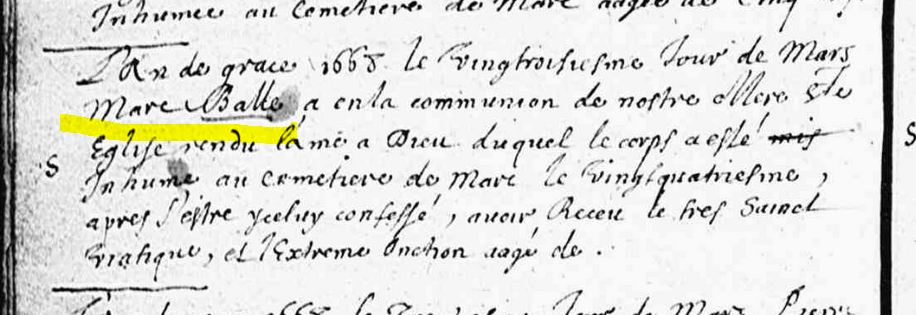 Inhumée au Cemetiere de Marc aagée de Cinq
L'An de grace 1668 le Vingtroisiesme Jour de Mars
Marc Balle a en la communion de nostre Mere Ste
Eglise rendu l'ame a Dieu duquel le corps a esté mis
S
Inhumé au Cemetiere de Marc le Vingtquatriesme,
apres s'estre yceluy confessé, avoir Receu le tres Sainct
Viatique, et l'Extreme Onction aagé de .
1668 le Jour de Mars